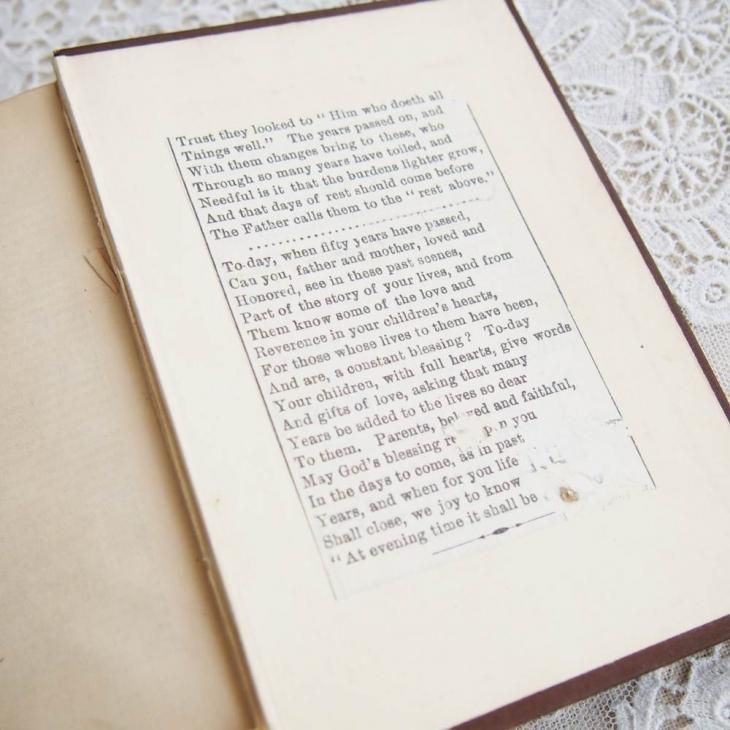 Trust they looked to “ Him who doeth all
Things well.” The years passed on, and
With them changes bring to these, who
Through so many years have toiled, and
Needful is it that the burdens lighter grow,
And that days of rest should come before
The Father calls them to the “ rest above.”
To-day, when fifty years have passed,
Can you, father and mother, loved and
Honored, see in these past scenes,
Part of the story of your lives, and from
Them know some of the love and
Reverence in your children’s hearts,
For those whose lives to them have been,
And are, a constant blessing? To-day
Your children, with full hearts, give words
And gifts of love, asking that many
Years be added to the lives so dear
To them. Parents, and faithful,
May God’s blessing you
In the days to come, as in past
Years, and when for you life
Shall close, we joy to know
“ At evening time it shall be